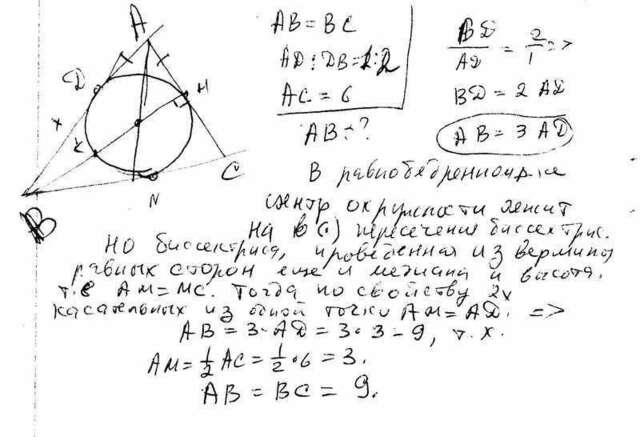 A
D
H
x
K
B
N
C
AB = BC
AD : DB = 1:2
AC = 6
AB - ?
BD/AD = 2/1 =>
BD = 2 AD
AB = 3 AD
В равнобедренном
центр окружности лежит
на в (·) пересечения биссектрис.
Но биссектриса, проведенная из вершины
равных сторон еще и медиана и высота.
т.е AM = MC. Тогда по свойству 2х
касательных из одной точки AM = AD. =>
AB = 3·AD = 3·3 = 9, т.к.
AM = 1/2 AC = 1/2 · 6 = 3.
AB = BC = 9.